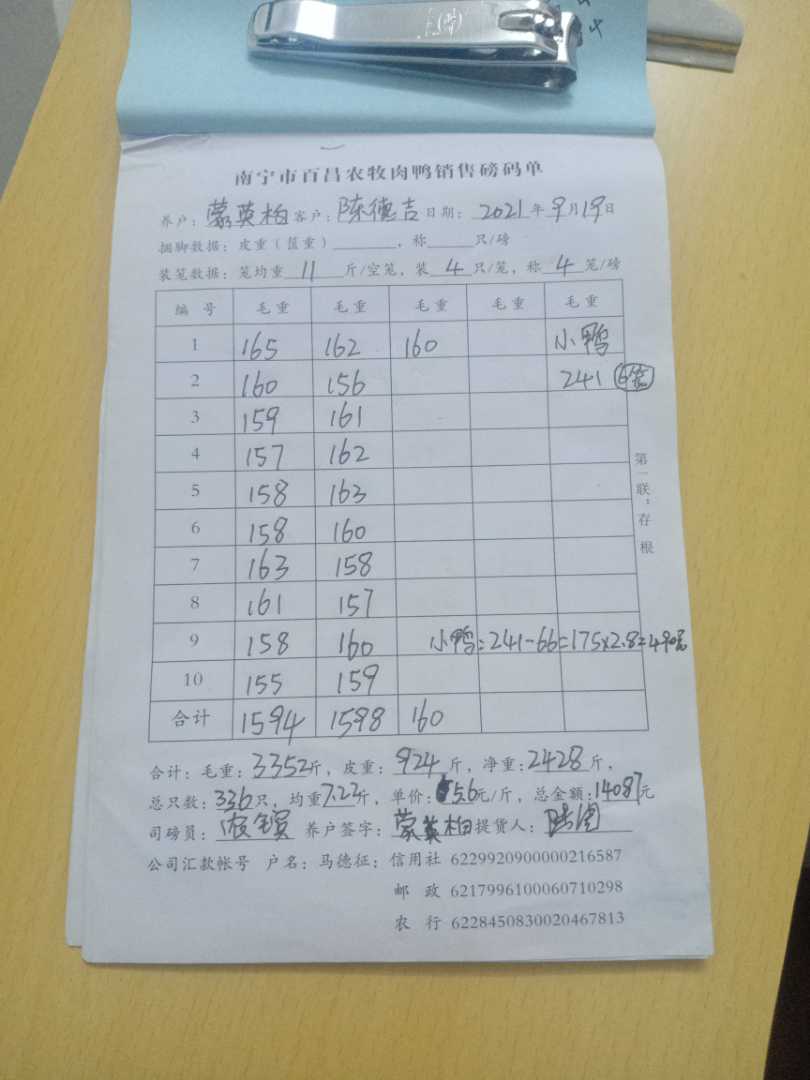 南宁市百昌农牧肉鸭销售磅码单
养户：蒙英柏 客户：陈德吉 日期：2021年9月19日
捆脚数据：皮重（筐重）______，称____只/磅
装笼数据：笼均重 11 斤/空笼，装 4 只/笼，称 4 笼/磅
编 号 毛 重 毛 重 毛 重 毛 重 毛 重
1 165 162 160 小鸭
2 160 156 241 6笼
3 159 161
4 157 162
5 158 163
6 158 160
7 163 158
8 161 157
9 158 160 小鸭：241-66=175x2.8=490元
10 155 159
合计 1594 1598 160
第一联：存根
合计：毛重：3352斤，皮重：924斤，净重：2428斤，
总只数：336只，均重7.23斤，单价：5.6元/斤，总金额：14087元
司磅员： 养户签字：蒙英柏 提货人：
公司汇款帐号 户名：马德征：信用社 6229920900000216587
邮 政 6217996100060710298
农 行 6228450830020467813